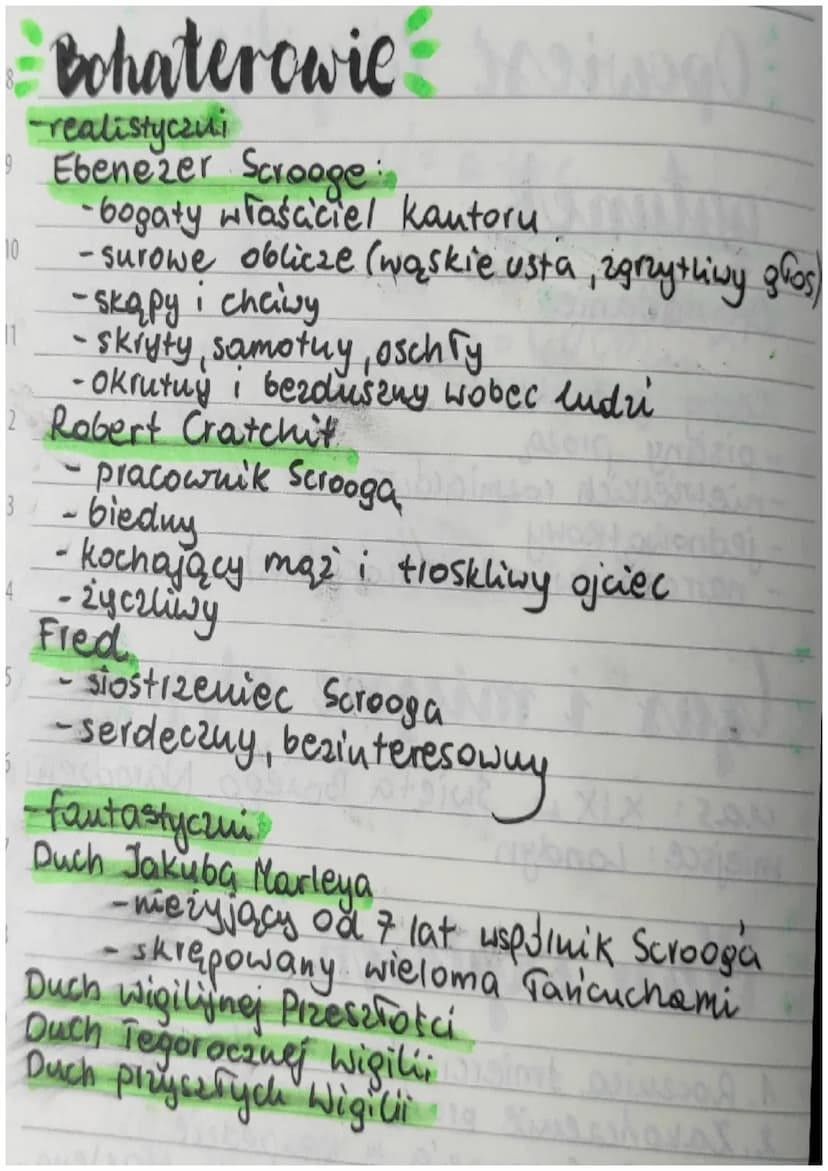 Bohaterowie
-realistyczni
Ebenezer Scrooge:
-bogaty właściciel kantoru
-surowe oblicze (wąskie usta, zgrzytliwy głos)
-skąpy i chciwy
-skryty, samotny, oschły
-okrutny i bezduszny wobec ludzi
Robert Cratchit
- pracownik Scrooga
-biedny
- kochający mąż i troskliwy ojciec
- życzliwy
Fred
- siostrzeniec Scrooga
-serdeczny, bezinteresowny
-fantastyczni
Duch Jakuba Marleya
-nieżyjący od 7 lat wspólnik Scrooga
- skrępowany wieloma łańcuchami
Duch Wigilijnej Przeszłości
Duch Tegorocznej Wigilii
Duch przyszłych Wigilii